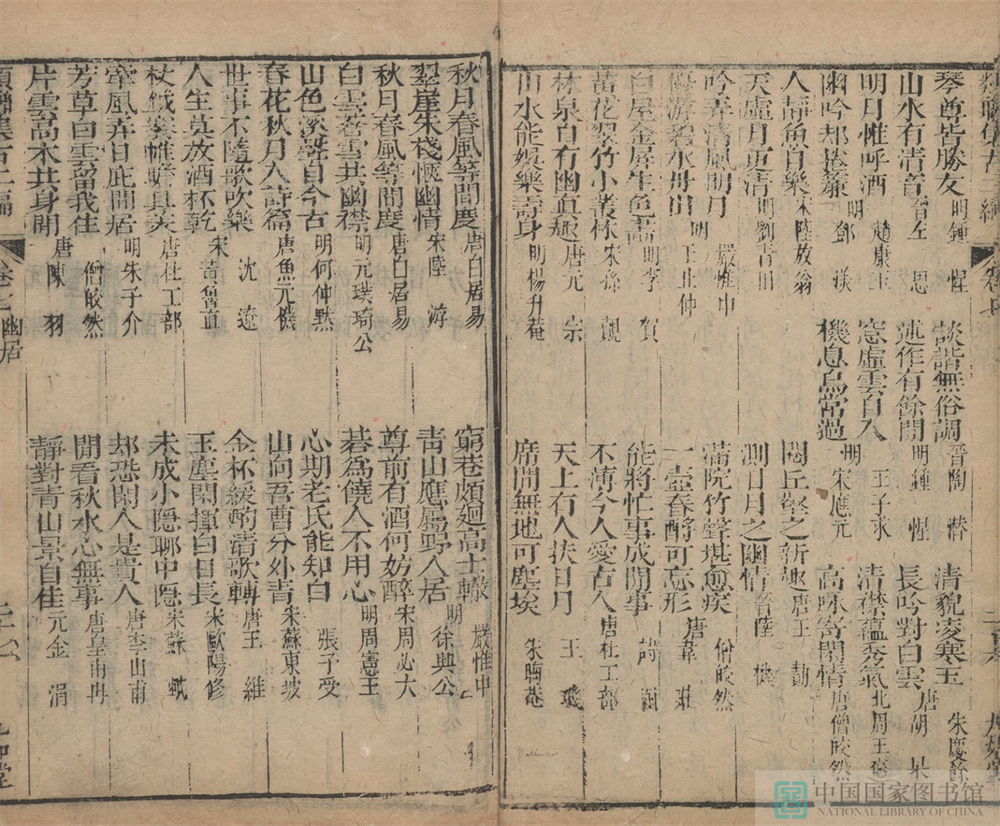 琴尊皆勝友 明鍾惺 談諧無俗調 晉陶潛 清貌凌寒玉 朱慶餘
山水有清音 晉左思 述作有餘閒 明鍾惺 長吟對白雲 唐胡杲
明月惟呼酒 趙康王 窓虛雲自入 王子求 清襟蘊秀氣 北周王褒
幽吟却捲簾 明鄧渼 機息鳥常過 明宋應元 高咏寄閒情 唐僧皎然
人靜魚自樂 宋陸放翁 閱丘壑之新趣 唐王勃
天虛月更清 明劉青田 測日月之幽情 晉陸機
吟弄清風明月 嚴惟中 滿院竹聲堪愈疾 僧皎然
傲游碧水丹山 明王止仲 一壺春酌可忘形 唐韋莊
白屋金屏生色畫 明李賀 能將忙事成閒事
黃花翠竹小叢林 宋孫覿 不薄今人愛古人 唐杜工部
林泉自有幽眞趣 唐玄宗 天上有人扶日月 王璲
山水能娛樂壽身 明楊升菴 席間無地可塵埃 朱晦菴
秋月春風等閒度 唐白居易 窮巷頗廻高士轍 嚴惟中
翠崖朱棧愜幽情 宋陸游 青山應屬野人居 明徐興公
秋月春風等閒度 唐白居易 尊前有酒何妨醉 宋周必大
白雲蒼雪共幽襟 明元璞琦公 碁爲饒人不用心 明周憲王
山色溪聲自今古 明何仲默 心期老氏能知白 張子受
春花秋月入詩篇 唐魚元機 山向吾曹分外青 宋蘇東坡
世事不隨歌吹樂 沈遼 金杯緩酌清歌轉 唐王維
人生莫放酒杯乾 宋黃魯直 玉塵閑揮白日長 宋歐陽修
杖鉞褰帷瞻具美 唐杜工部 未成小隱聊中隱 宋蘇軾
牽風弄日庇閒居 明朱子介 却恐閑人是貴人 唐李山甫
芳草白雲留我住 僧皎然 閒看秋水心無事 唐皇甫冉
片雲喬木共身閒 唐陳羽 靜對青山景自佳 元金涓
卷七 幽居